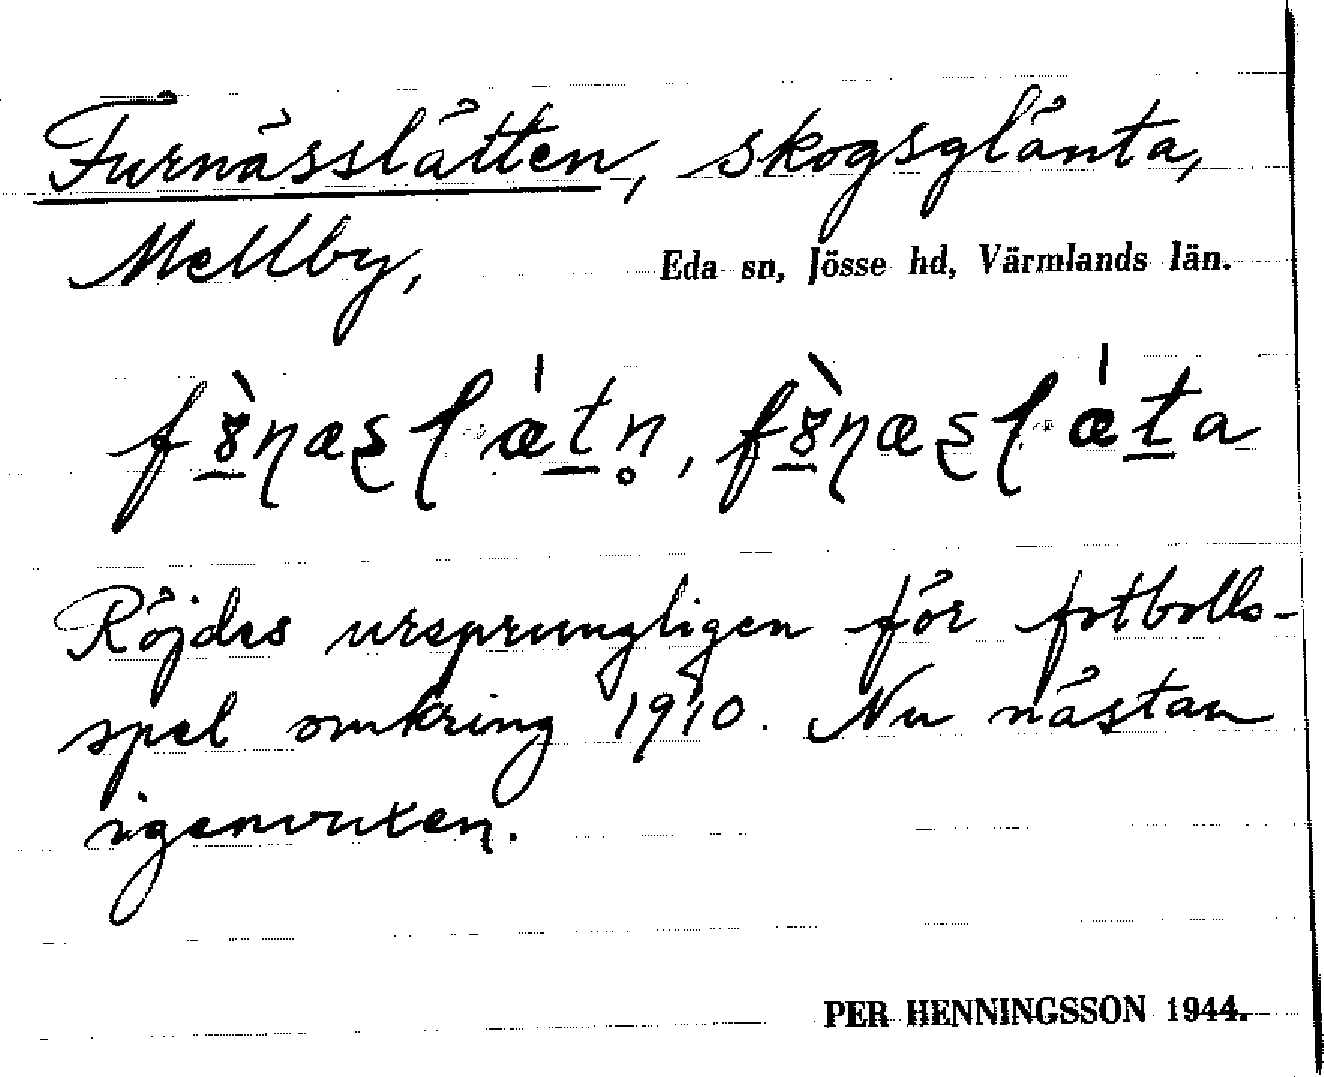 Furnässlätten, skogsglänta,
Mellby, Eda sn, Jösse hd, Värmlands län.
Röjdes ursprungligen för fotbolls-
spel omkring 1910. Nu nästan
igenvuxen.
PER HENNINGSSON 1944.